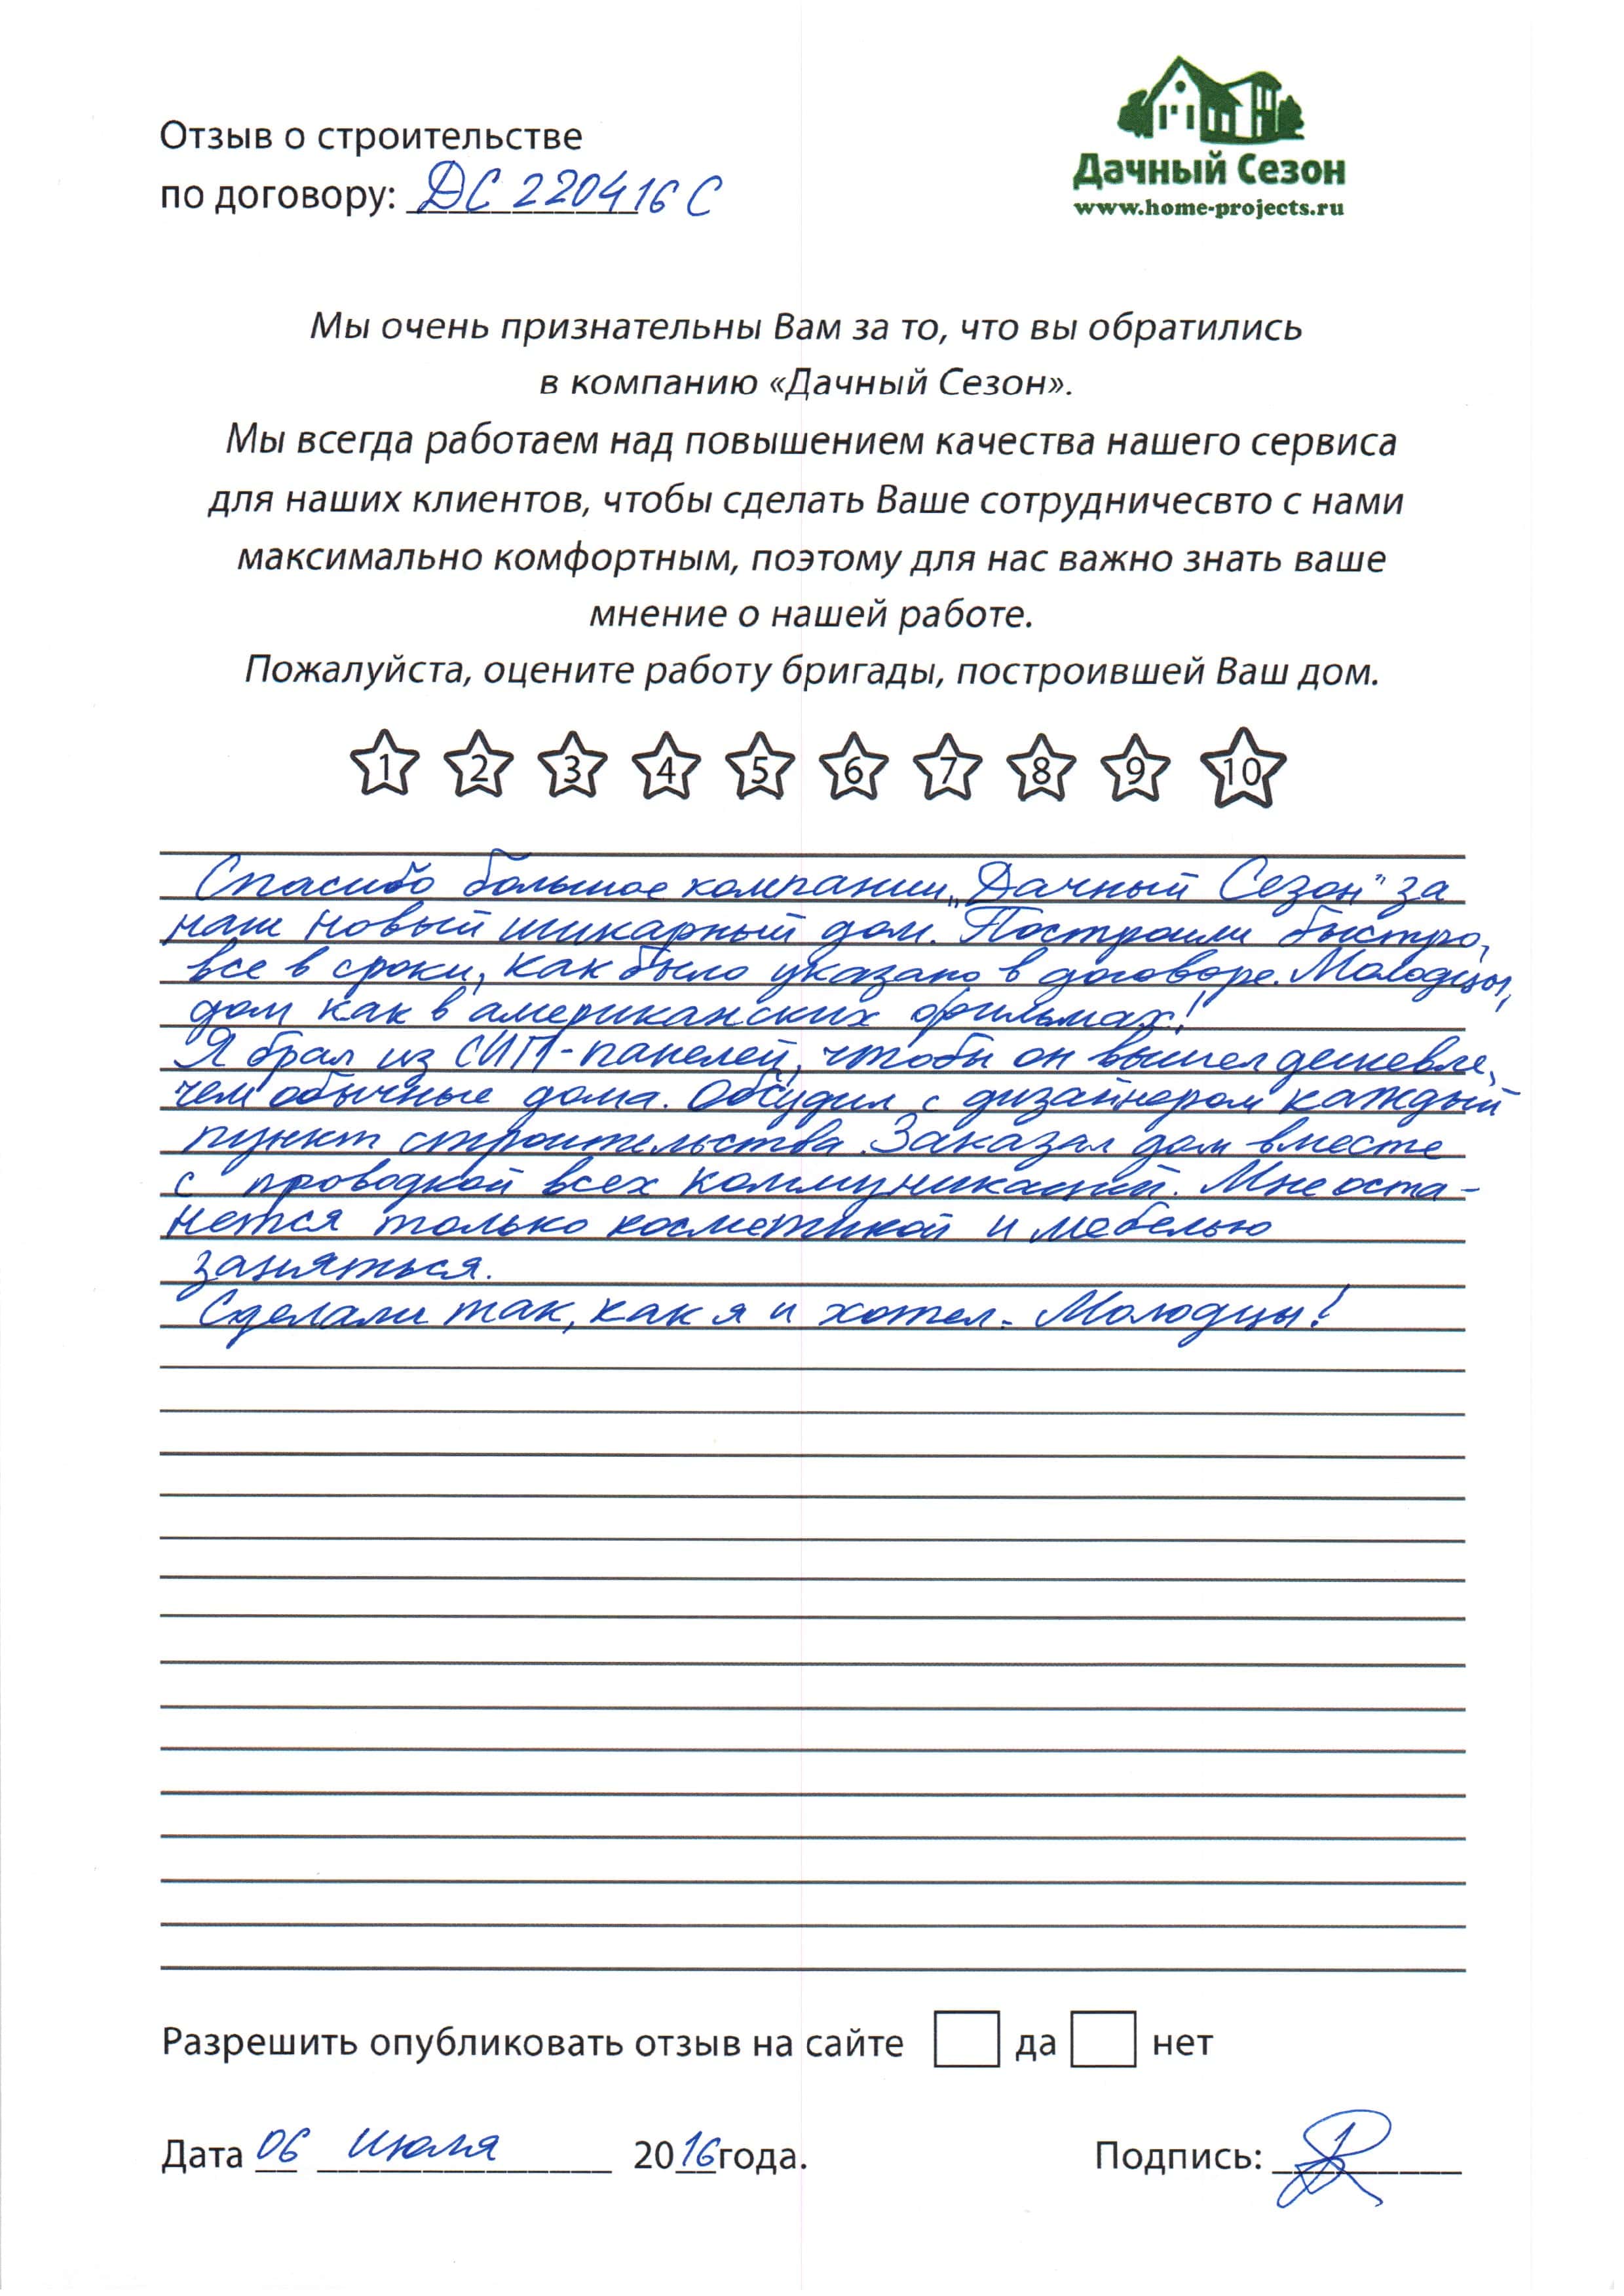 Отзыв о строительстве
по договору: ДС 220416 С
Дачный Сезон
www.home-projects.ru
Мы очень признательны Вам за то, что вы обратились
в компанию «Дачный Сезон».
Мы всегда работаем над повышением качества нашего сервиса
для наших клиентов, чтобы сделать Ваше сотрудничесвто с нами
максимально комфортным, поэтому для нас важно знать ваше
мнение о нашей работе.
Пожалуйста, оцените работу бригады, построившей Ваш дом.
1 2 3 4 5 6 7 8 9 10
Спасибо большое компании „Дачный Сезон" за
наш новый шикарный дом. Построили быстро,
все в сроки, как было указано в договоре. Молодцы,
дом как в американских фильмах!
Я брал из СИП-панелей, чтобы он вышел дешевле,
чем обычные дома. Обсудил с дизайнером каждый
пункт строительства. Заказал дом вместе
с проводкой всех коммуникаций. Мне оста-
нется только косметикой и мебелью
заняться.
Сделали так, как я и хотел. Молодцы!
Разрешить опубликовать отзыв на сайте да нет
Дата 06 июля 2016 года. Подпись: